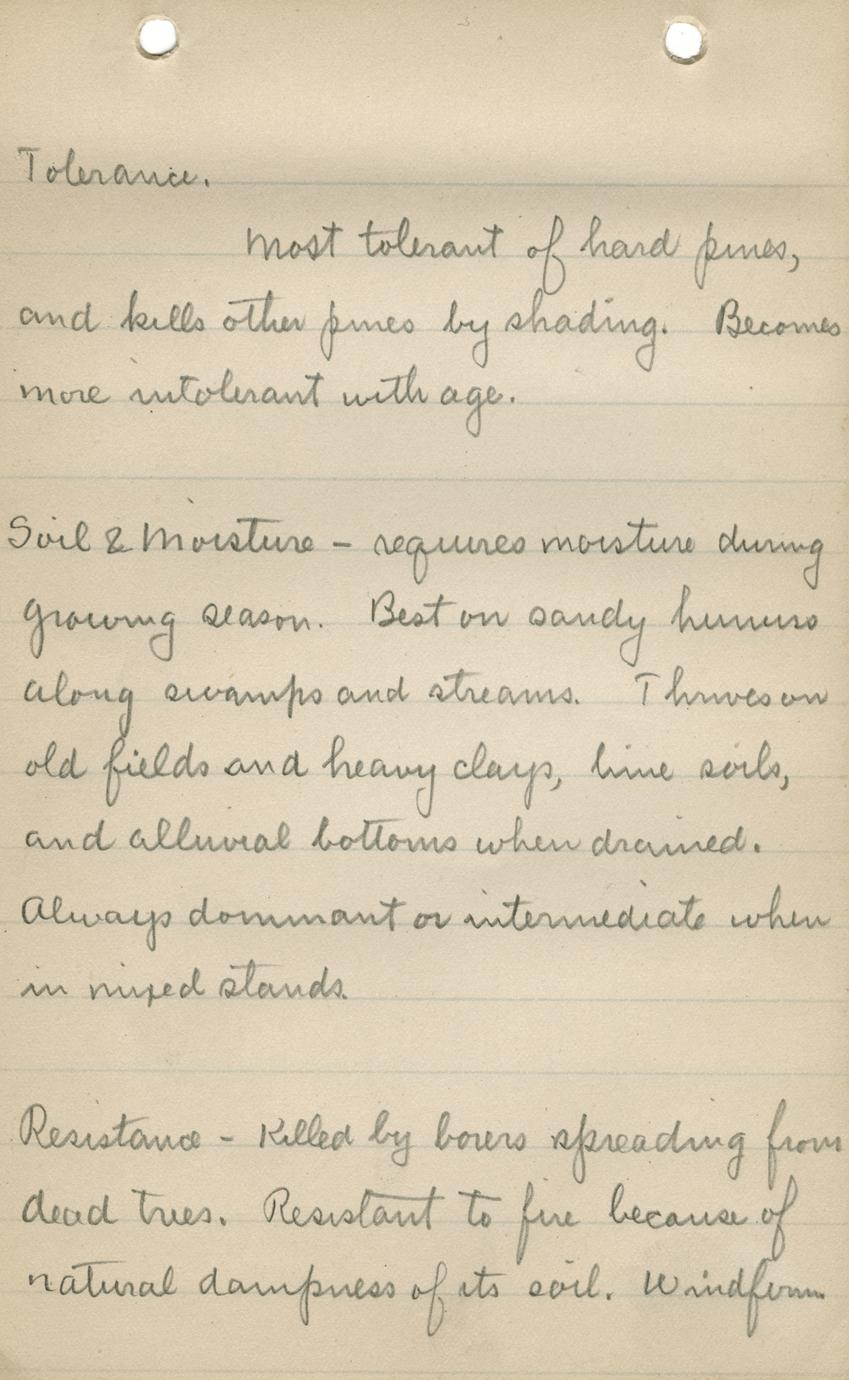 Tolerance.
Most tolerant of hard pines,
and kills other pines by shading. Becomes
more intolerant with age.
Soil & Moisture – requires moisture during
growing season. Best on sandy humus
along swamps and streams. Thrives on
old fields and heavy clays, lime soils,
and alluvial bottoms when drained.
Always dominant or intermediate when
in mixed stands.
Resistance – Killed by borers spreading from
dead trees. Resistant to fire because of
natural dampness of its soil. Windfirm.